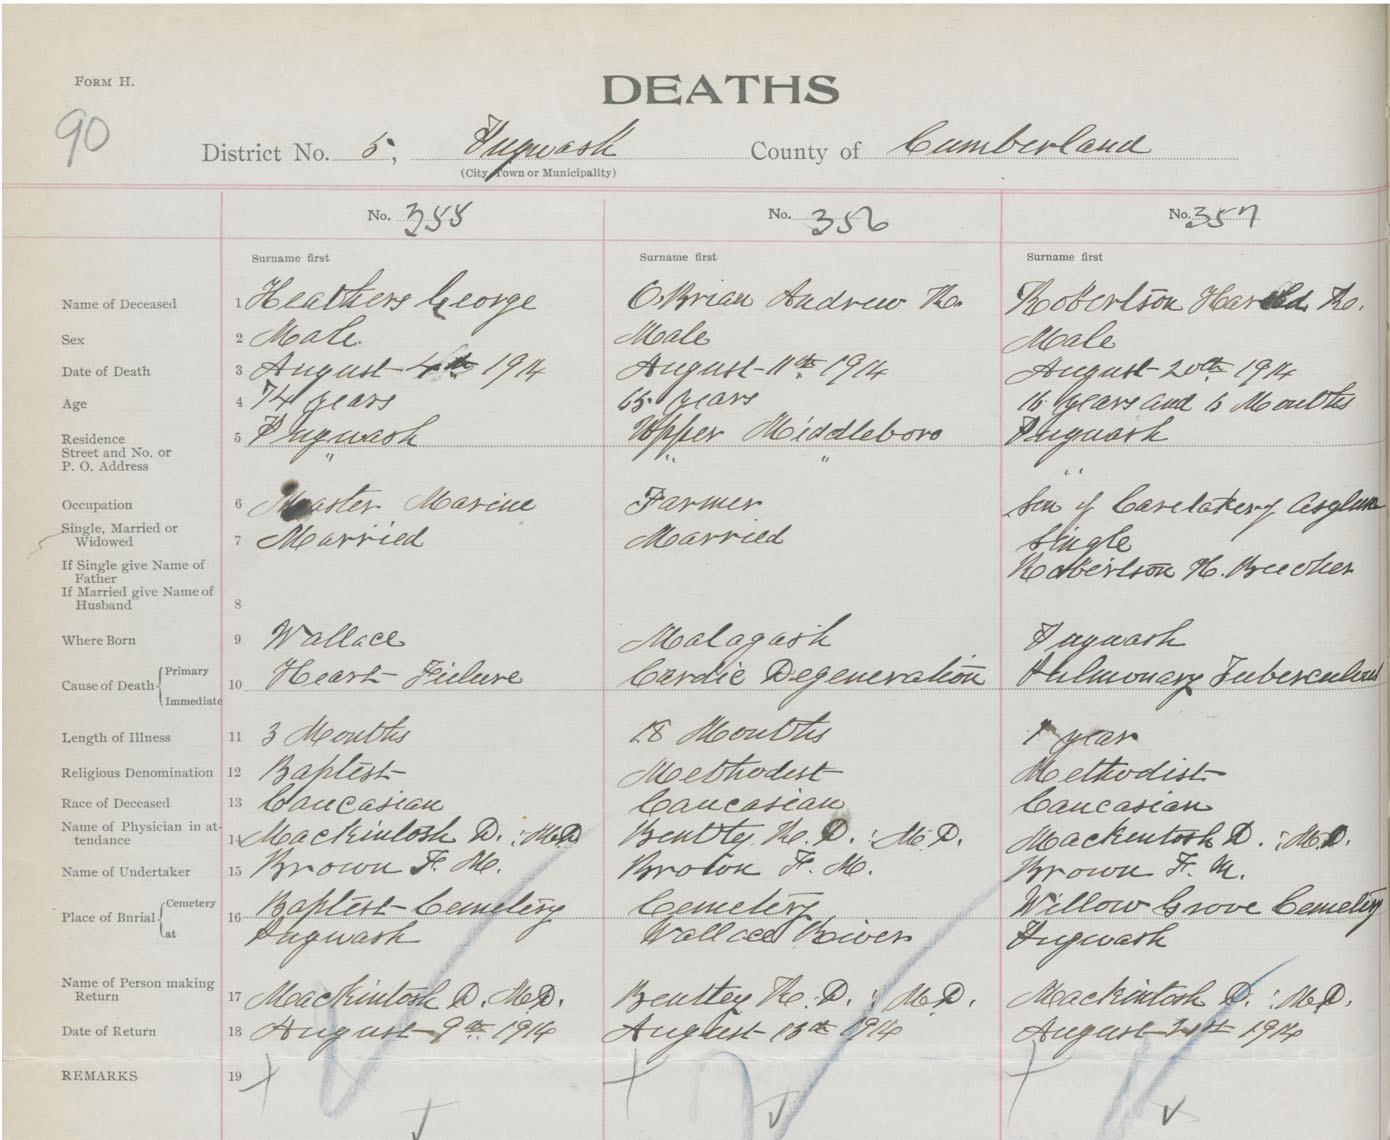 FORM H.
DEATHS
90
District No. 5, Pugwash County of Cumberland
(City Town or Municipality)
No. 355 No. 356 No. 357
Surname first Surname first Surname first
Name of Deceased 1 Heathers George O'Brian Andrew R. Robertson Harold Ro.
Sex 2 Male Male Male
Date of Death 3 August 4th 1914 August 11th 1914 August 20th 1914
Age 4 74 years 65 years years and 6 Months
Residence 5 Pugwash Upper Middleboro Pugwash
Street and No. or " " " "
P. O. Address
Occupation 6 Master Marine Farmer Son of Caretaker of Asylum
Single, Married or
Widowed 7 Married Married Single
If Single give Name of
Father Robertson H. Beecher
If Married give Name of
Husband 8
Where Born 9 Wallace Malagash Pugwash
Cause of Death { Primary
10 Heart Failure Cardic Degeneration Pulmonary Tuberculous
Immediate
Length of Illness 11 3 Months 18 Months 1 year
Religious Denomination 12 Baptist Methodist Methodist
Race of Deceased 13 Caucasian Caucasian Caucasian
Name of Physician in at-
tendance 14 Mackintosh D. : M.D Bentley R. D. : M. D. Mackintosh D. : M.D.
Name of Undertaker 15 Brown F. M. Brown F. M. Brown F. M.
Place of Burial { Cemetery
16 Baptist Cemetery Cemetery Willow Grove Cemetery
at Pugwash Wallace River Pugwash
Name of Person making
Return 17 Mackintosh D. M.D. Bentley R. D. : M. D. Mackintosh D. : M.D.
Date of Return 18 August 9th 1914 August 13th 1914 August 31st 1914
REMARKS 19